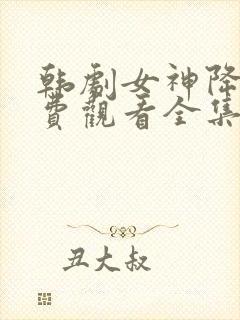 韩剧女神降
费觀看全集
丑大叔